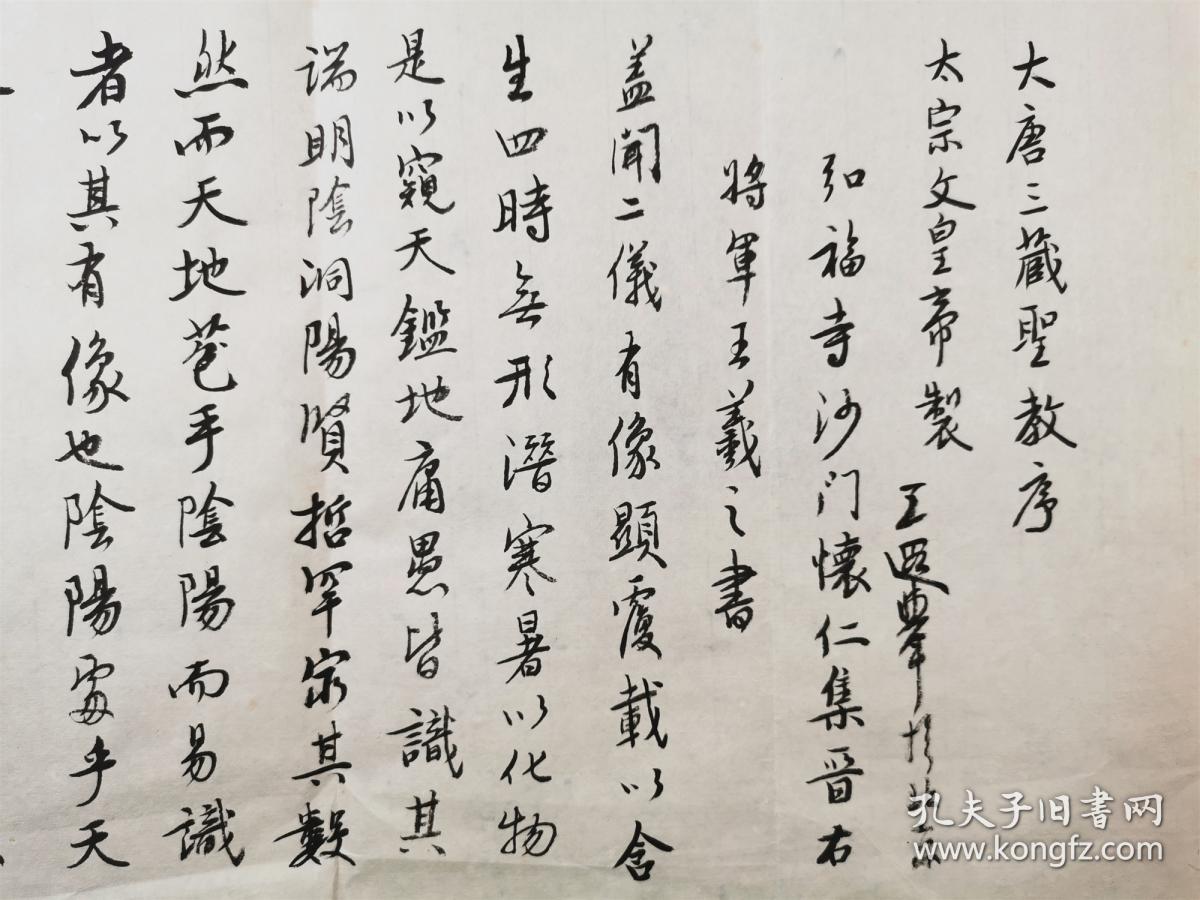 大唐三藏聖教序
太宗文皇帝製
王
弘福寺沙门懷仁集晉右
將軍王羲之書
盖聞二儀有像顯覆載以含
生四時無形潛寒暑以化物
是以窺天鑑地庸愚皆識其
端明陰洞陽賢哲罕窮其數
然而天地苞乎陰陽而易識
者以其有像也陰陽處乎天
孔夫子旧书网
www.kongfz.com